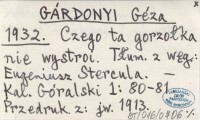 GÁRDONYI Géza
1932. Czego ta gorzołka
nie wystroi. Tłum. z węg.:
Eugeniusz Stercula. —
Kal. Góralski 1: 80-81.
Przedruk z: jw. 1913.